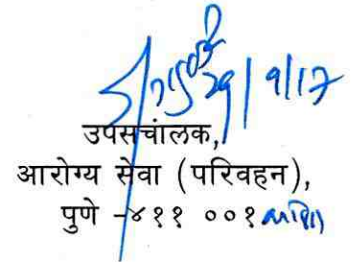 29/9/17
उपसचांलक,
आरोग्य सेवा (परिवहन),
पुणे -४११ ००१